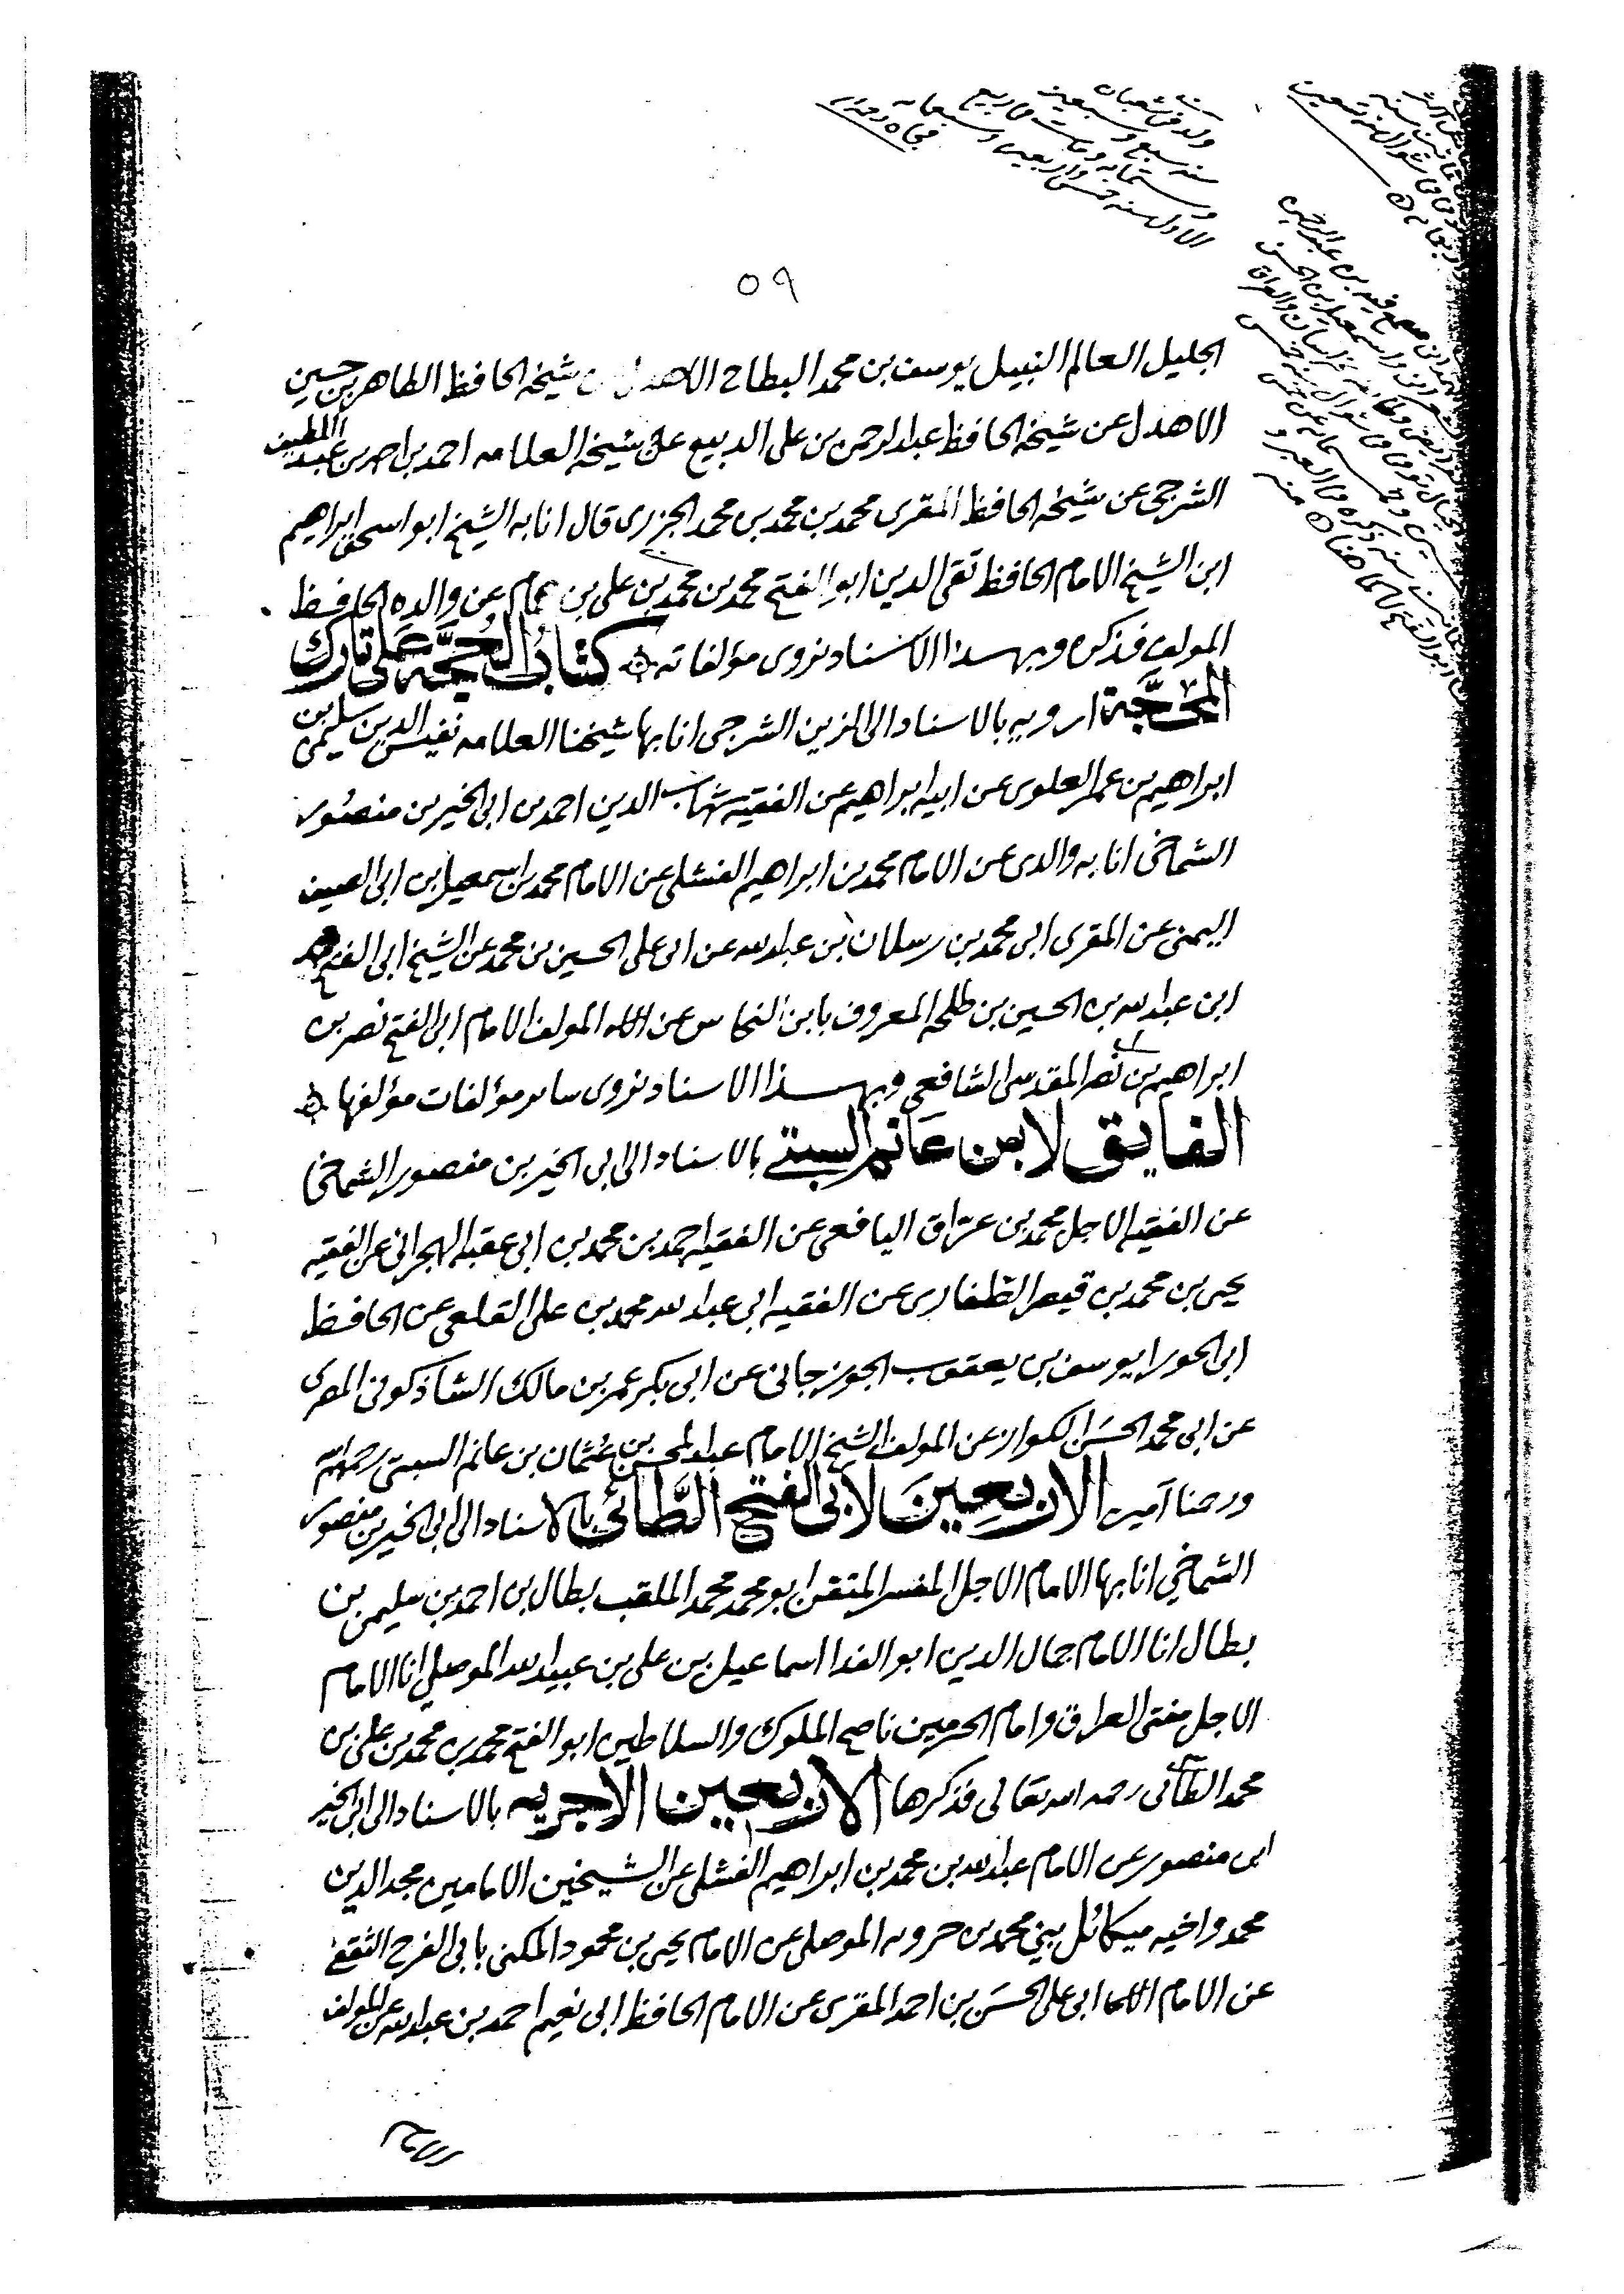 ولد في شعبان
سنه سبع وسبعين
وستمايه ومات في ربيع
الاول سنه خمس واربعين وسبعمايه
٥٩
الجليل العالم النبيل يوسف بن محمد البطاح الاهدل عن شيخه الحافظ الطاهر بن حسين
الاهدل عن شيخه الحافظ عبد الرحمن بن علي الديبع عن شيخه العلامه احمد بن احمد بن عبد اللطيف
الشرجي عن شيخه الحافظ المقري محمد بن محمد بن محمد الجزري قال انا به الشيخ ابو اسحق ابراهيم
ابن الشيخ الامام الحافظ تقي الدين ابو الفتح محمد بن محمد بن علي بن همام عن والده الحافظ
المولف فذكره وبهذا الاسناد نروي مؤلفاته كتاب الحجة على تارك
المحجة ارويه بالاسناد الى الزين الشرجي انا بها شيخنا العلامه نفيس الدين سليمن بن
ابراهيم بن عمر العلوي عن ابيه ابراهيم عن الفقيه شهاب الدين احمد بن ابي الخير بن منصور
الشماخي انا به والدي عن الامام محمد بن ابراهيم الفشلي عن الامام محمد بن اسمعيل بن ابي الصيف
اليمني عن المقري ابي محمد بن رسلان بن عبد الله عن ابي علي الحسين بن محمد عن الشيخ ابي الفتح
ابن عبد الله بن الحسين بن طلحه المعروف بابن النحاس عن المولف الامام ابي الفتح نصر بن
ابراهيم بن نصر المقدسي الشافعي وبهذا الاسناد نروي ساير مؤلفات مؤلفها
الفايق لابن غانم السبتي بالاسناد الى ابي الخير بن منصور الشماخي
عن الفقيه الاجل محمد بن عراق اليافعي عن الفقيه احمد بن محمد بن ابي عقبه الهجراني عن الفقيه
يحيى بن محمد بن قيصر الظفاري عن الفقيه ابي عبد الله محمد بن علي القلعي عن الحافظ
ابي الحورا يوسف بن يعقوب الجوزجاني عن ابي بكر عمر بن مالك الشاذكوني المصري
عن ابي محمد الحسن الكواز عن المولف الشيخ الامام عبد المحسن بن عثمان بن غانم السبتي رحمه الله
ورحمنا آمين الاربعين لابي الفتح الطائي بالاسناد الى ابي الخير بن منصور
الشماخي انا بها الامام الاجل المفسر المتقن ابو محمد محمد الملقب بطال بن احمد بن سليمن بن
بطال انا الامام جمال الدين ابو الفدا اسماعيل بن علي بن عبيد الله الموصلي انا الامام
الاجل مفتي العراق وامام الحرمين ناصح الملوك والسلاطين ابو الفتح محمد بن محمد بن علي بن
محمد الطائي رحمه الله تعالى فذكرها الاربعين الاجريه بالاسناد الى ابي الخير
ابن منصور عن الامام عبد الله بن محمد بن ابراهيم الفشلي عن الشيخين الامامين مجد الدين
محمد واخيه ميكائل بني محمد بن حرويه الموصلي عن الامام يحيى بن محمود المكنى بابي الفرح الثقفي
عن الامام ابي علي الحسن بن احمد المقري عن الامام الحافظ ابي نعيم احمد بن عبد الله عن المولف
الامام